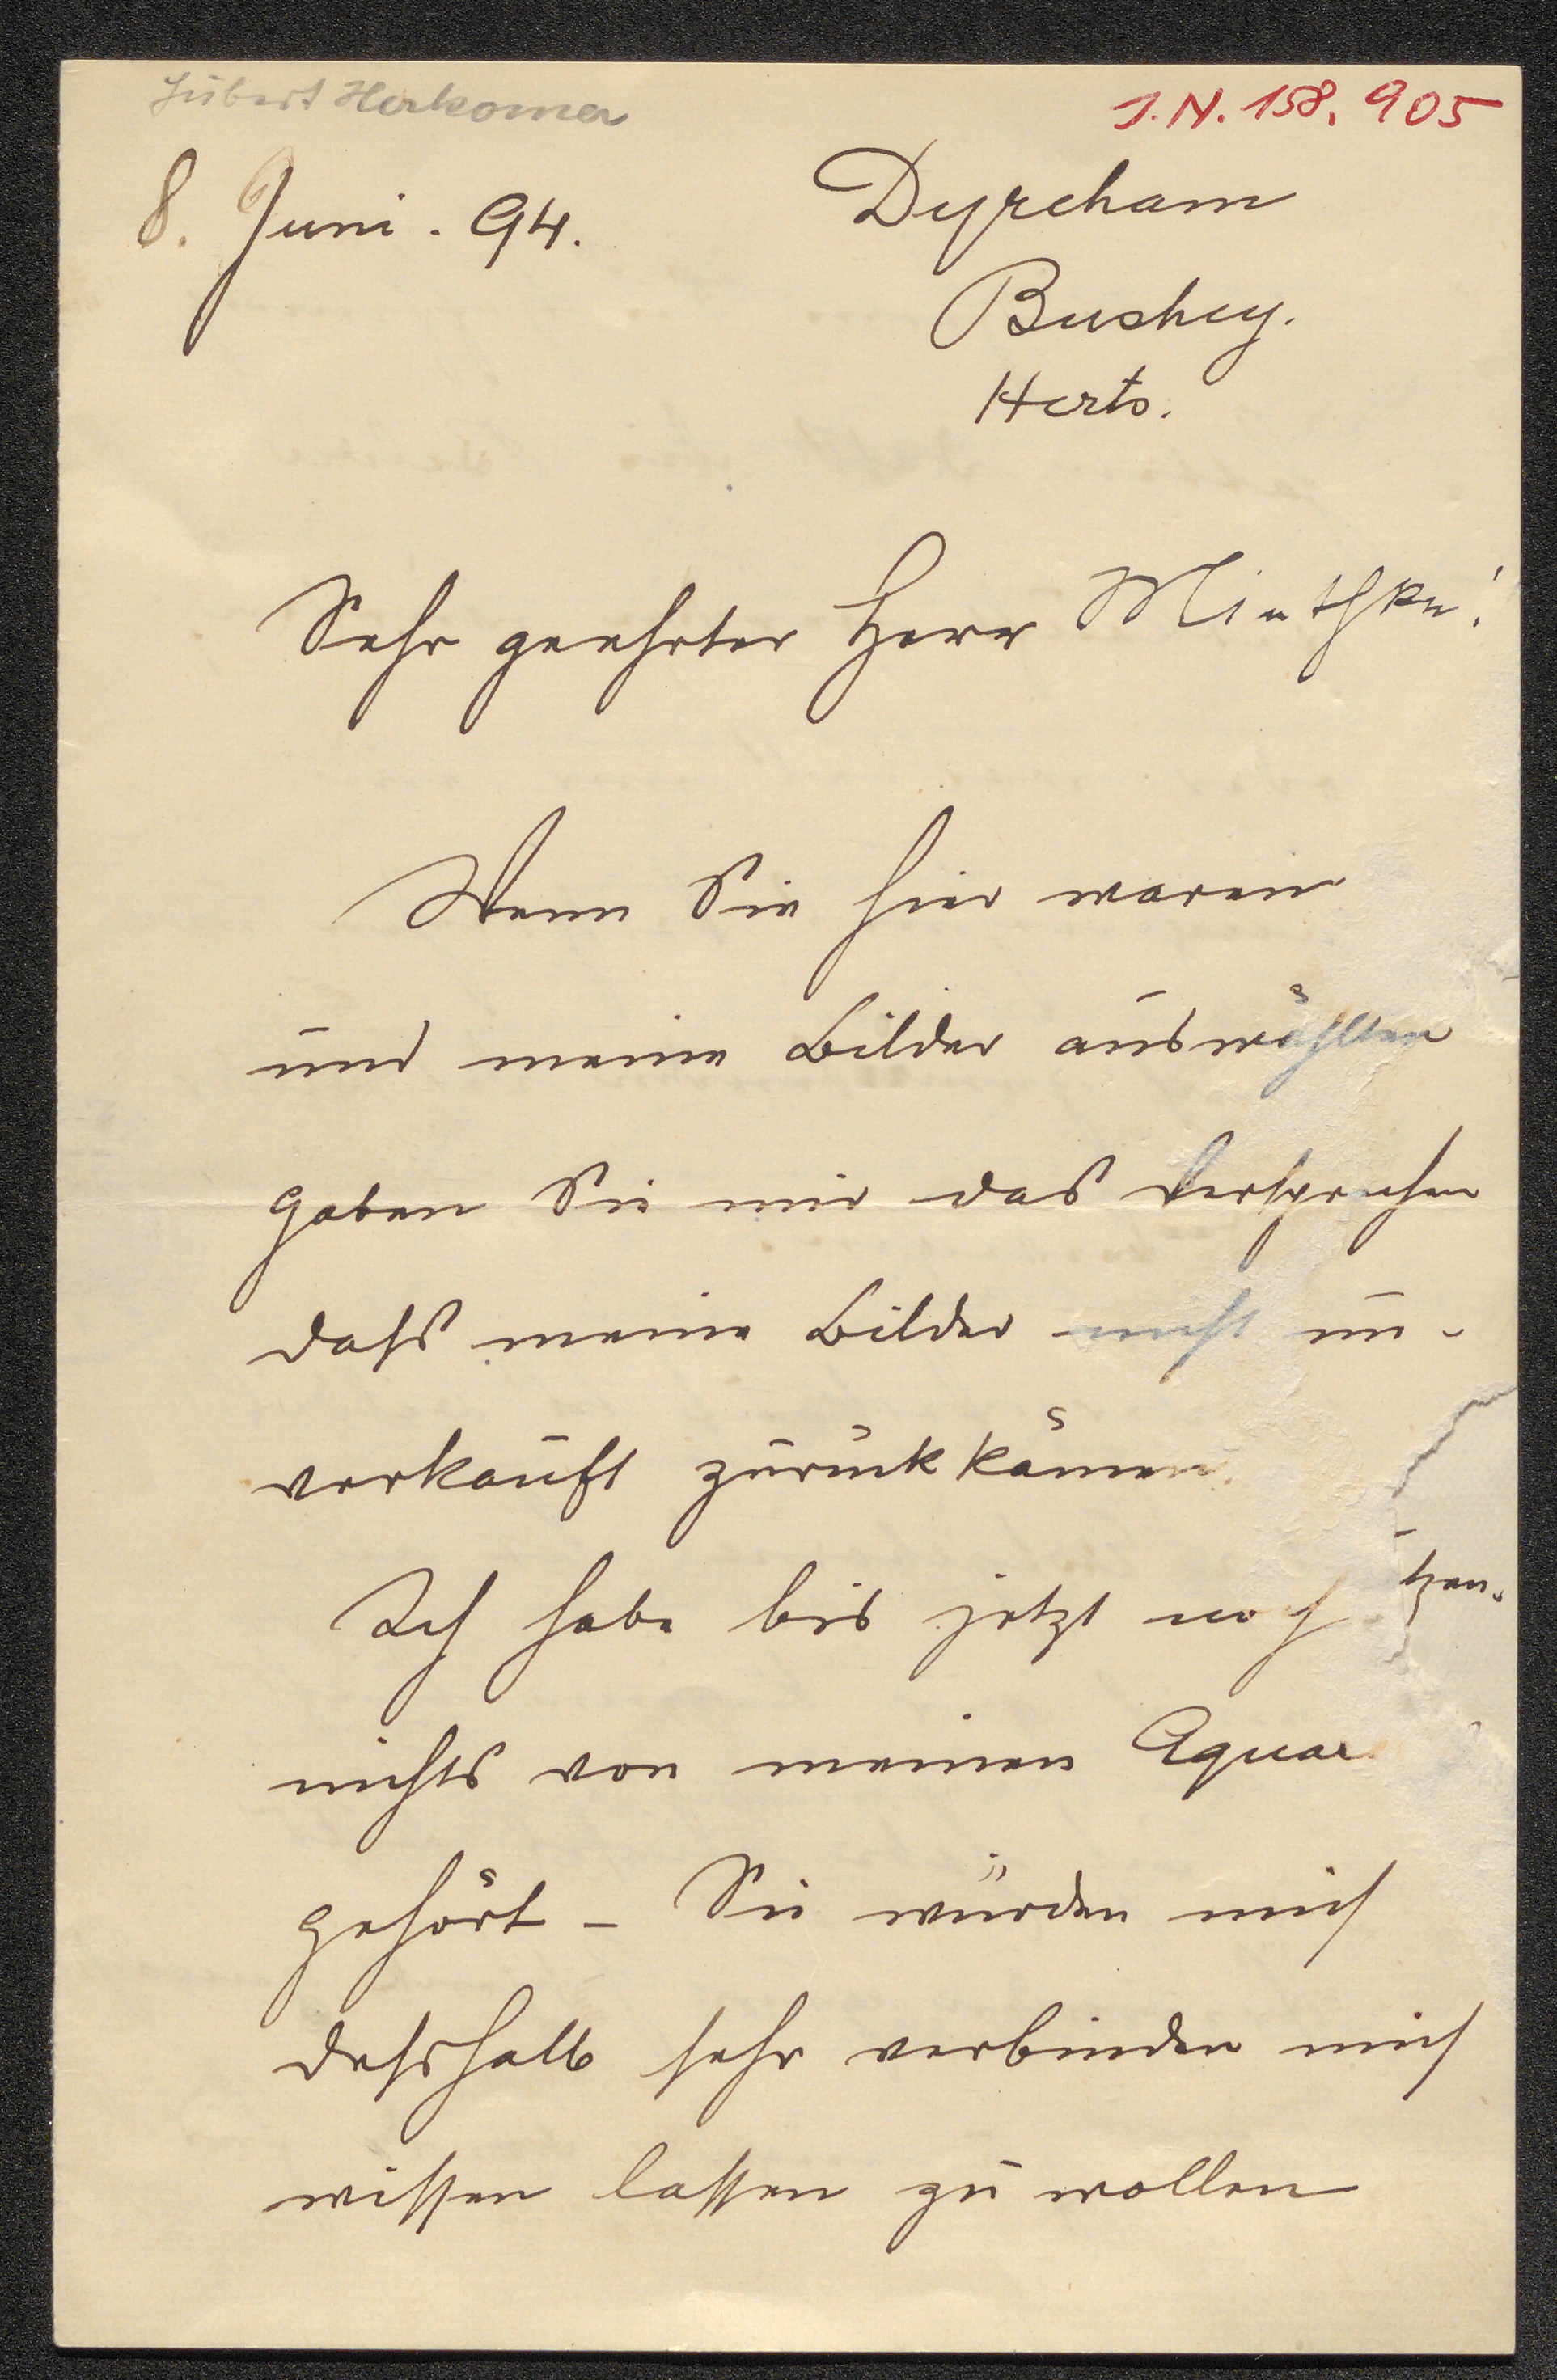 Hubert Herkomer
J.N. 158.905
8. Juni. 94.
Dyrcham
Bushey.
Herts.
Sehr geehrter Herr Miethke!
Wenn Sie hier waren
und meine Bilder auswählten
gaben Sie mir das Versprechen
dass meine Bilder nicht un-
verkauft zurückkämen.
Ich habe bis jetzt noch
nichts von meinen Aquar
gehört - Sie würden mich
desshalb sehr verbinden mich
wissen lassen zu wollen